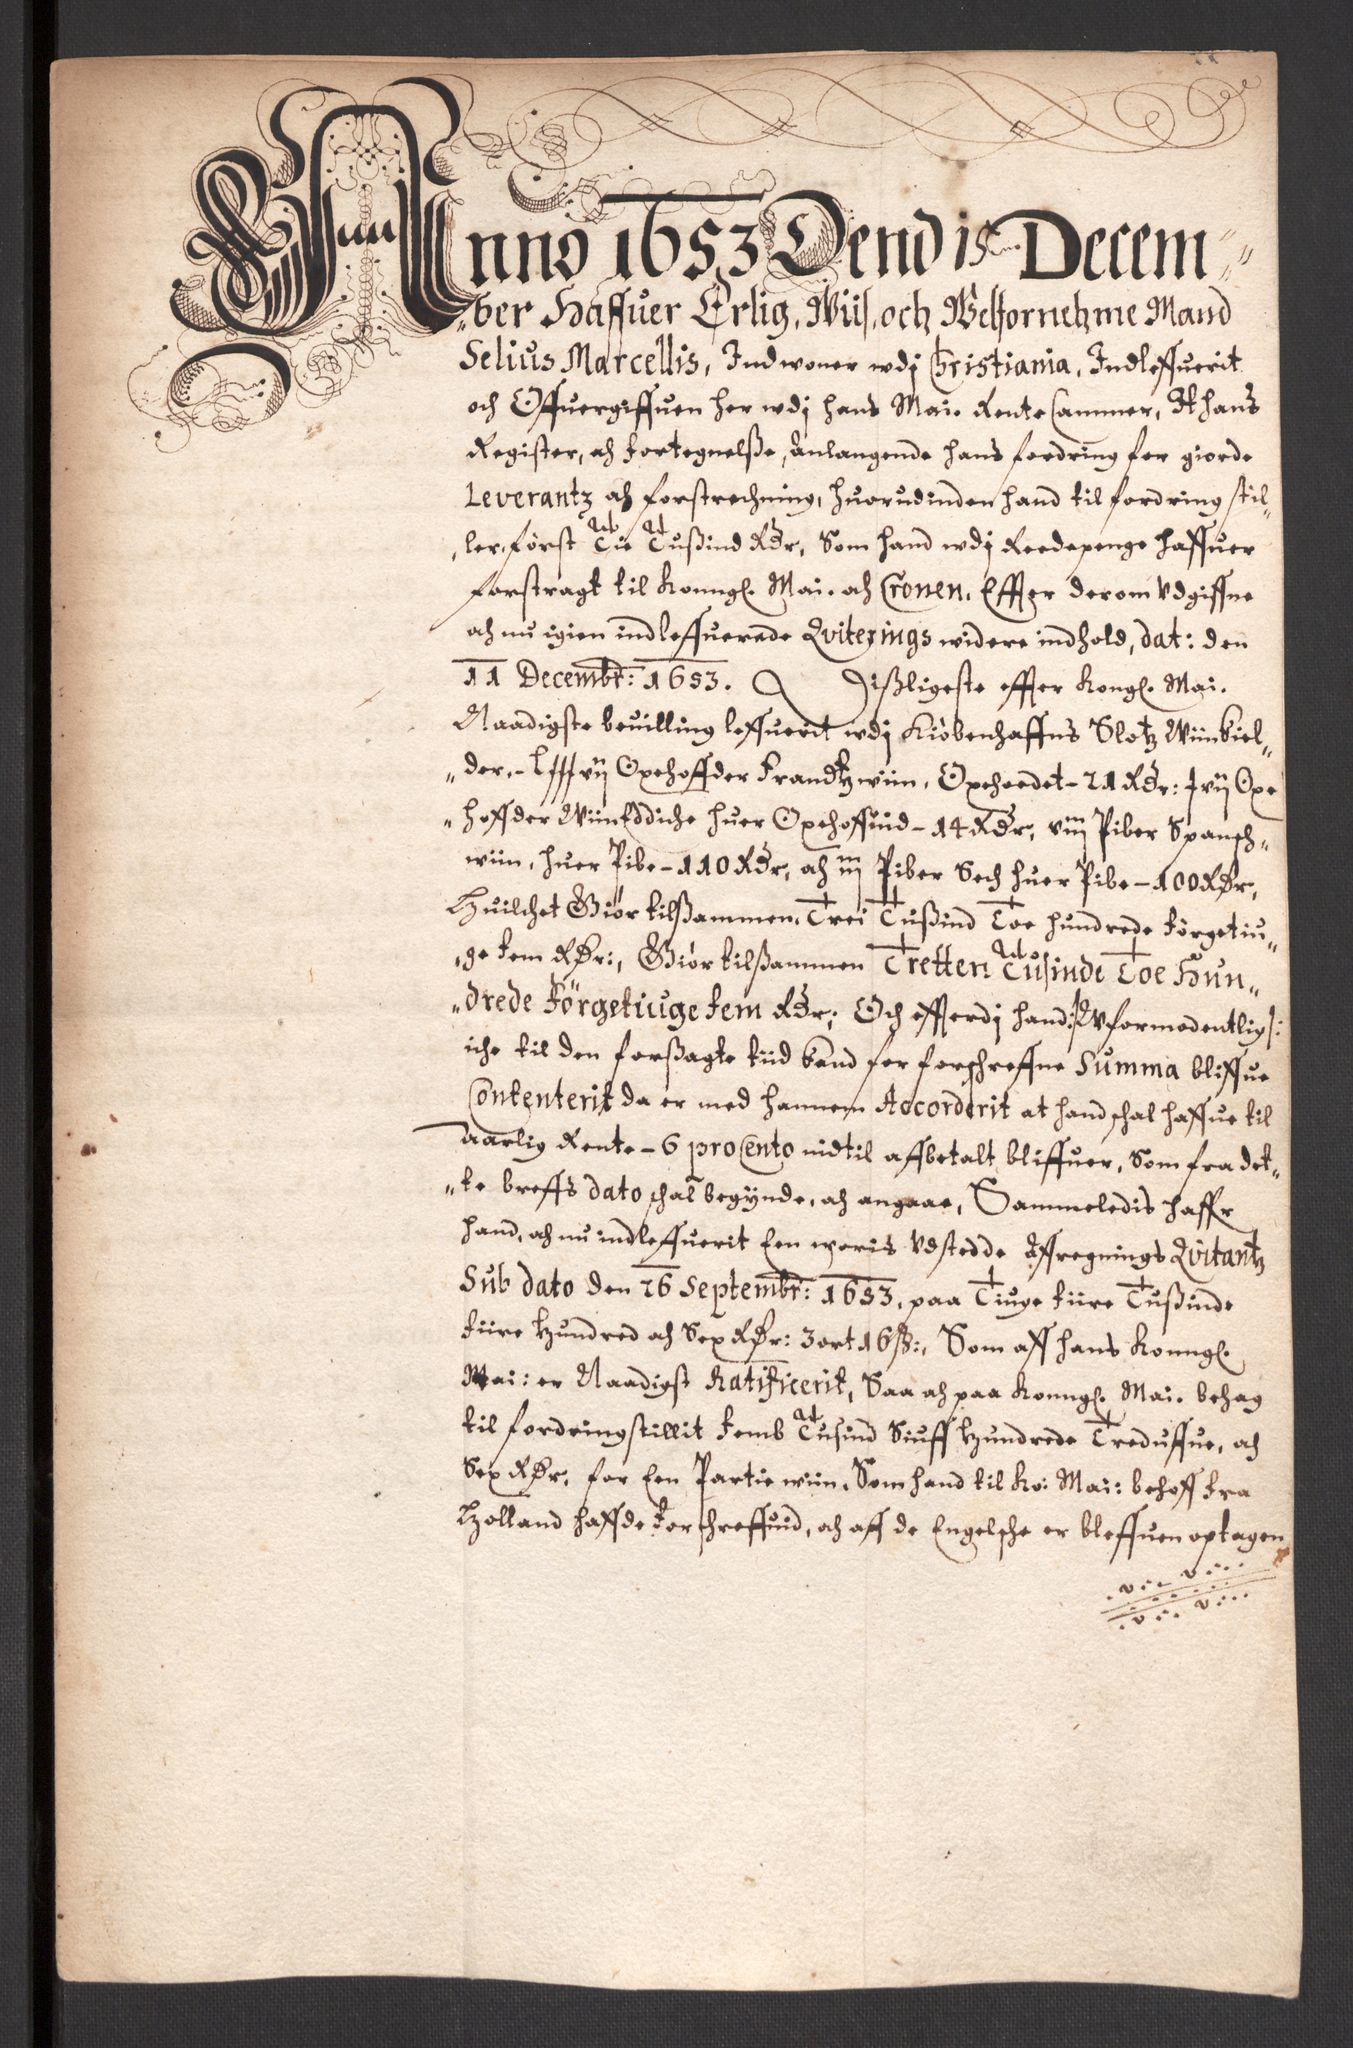 Anno 1653 Dend 15 Decem=
=ber Haffuer Erlig, Wiis, och Welfornehme Mand
Selius Marcellis, Indwoner wdj Christiania, Indleffuerit
och Offuergiffuen her wdj hans Mai. Rente Cammer, Et hans
Register, och fortegnelße, Anlangende hans fordring for giorde
Leverantz och forstrechning, huorudinden hand til fordring stil=
ler, først Tie Tußind Rdr, Som hand wdj Reedepenge haffuer
forstragt til Konngl. Mai. och Cronen, Effter derom Udgiffne
och nu igien indleffuerede Qviterings widere indhold, dat: den
11 Decembr: 1653. Dißligeste effter Kongl. Mai.
Naadigste beuilling leffuerit wdj Kiøbenhaffns Slotz Wiinkiel=
=der,- Oxehoffder Frandtzwiin, Oxehoedet- 21 Rdr: Oxe
=hoffder Wiin Eddiche huer Oxehoffuid- 14 Rdr, viij Piber Spansch=
wiin, huer Pibe- 110 Rdr, och iij Piber Sech huer Pibe- 100 Rdr,
Huilchet Giør tilßammen, Trei Tußind Toe hundrede førgetiu=
=ge fem Rdr:, Giør tilßammen Tretten Tusinde Toe Hun=
=drede Førgetiuge fem Rdr; Och efferdj hand /: Uformodentlig :/
iche til den forßagte tiid kand for forschreffne Summa bliffue
Contenterit da er med hannem Accorderit at hand schal haffue til
aarlig Rente- 6 pro Cento indtil affbetalt bliffuer, Som fra det=
=te breffs dato schal begynde, och angaae, Sammeledis haffr
hand, och nu indleffuerit Een woris Udstedde Affregnings Qvitantz
Sub dato den 26 Septembr: 1653, paa Tiuge fiire Tußinde
fiire Hundred och Sex Rdr: 3 ort 16 ß:, Som aff hans Konngl.
Mai: er Naadigst Ratificerit, Saa och paa Konngl. Mai. behag
til fordring stillit femb Tusind Siuff Hundrede Treduffue, och
Sex Rdr, for Een Partie wiin, Som hand til Ko: Mai: behoff fra
Holland haffde forschreffuid, och aff de Engelsche er bleffuen optagen